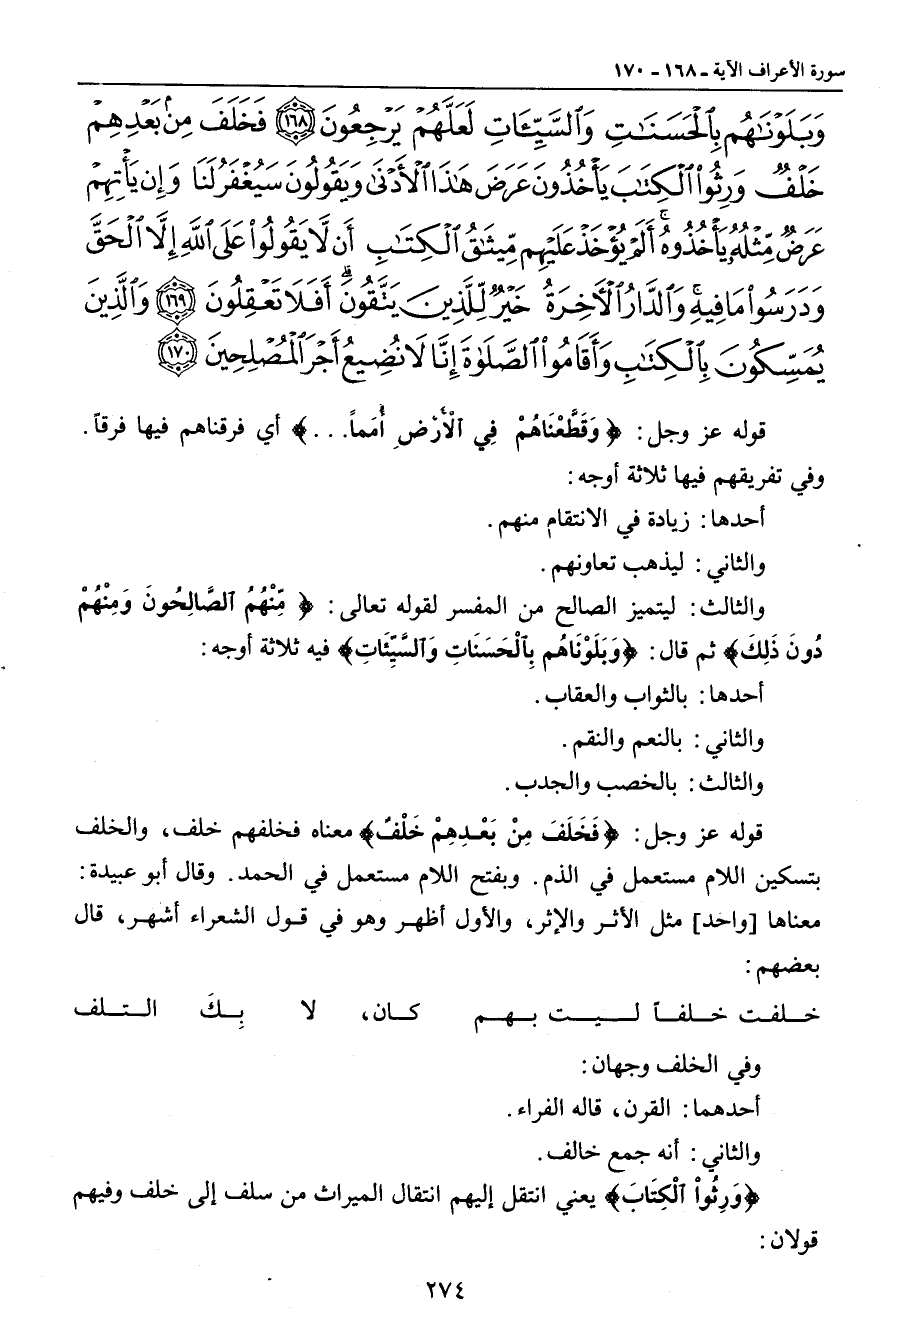 سورة الأعراف الآية ـ ١٦٨ ـ ١٧٠
وَبَلَوْنَٰهُم بِٱلْحَسَنَٰتِ وَٱلسَّيِّـَٔاتِ لَعَلَّهُمْ يَرْجِعُونَ ﴿١٦٨﴾ فَخَلَفَ مِنۢ بَعْدِهِمْ
خَلْفٌ وَرِثُوا۟ ٱلْكِتَٰبَ يَأْخُذُونَ عَرَضَ هَٰذَا ٱلْأَدْنَىٰ وَيَقُولُونَ سَيُغْفَرُ لَنَا وَإِن يَأْتِهِمْ
عَرَضٌ مِّثْلُهُۥ يَأْخُذُوهُ ۚ أَلَمْ يُؤْخَذْ عَلَيْهِم مِّيثَٰقُ ٱلْكِتَٰبِ أَن لَّا يَقُولُوا۟ عَلَى ٱللَّهِ إِلَّا ٱلْحَقَّ
وَدَرَسُوا۟ مَا فِيهِ ۗ وَٱلدَّارُ ٱلْـَٔاخِرَةُ خَيْرٌ لِّلَّذِينَ يَتَّقُونَ ۗ أَفَلَا تَعْقِلُونَ ﴿١٦٩﴾ وَٱلَّذِينَ
يُمَسِّكُونَ بِٱلْكِتَٰبِ وَأَقَامُوا۟ ٱلصَّلَوٰةَ إِنَّا لَا نُضِيعُ أَجْرَ ٱلْمُصْلِحِينَ ﴿١٧٠﴾
قوله عز وجل: ﴿وَقَطَّعْنَاهُمْ فِي ٱلْأَرْضِ أُمَماً. . .﴾ أي فرقناهم فيها فرقاً.
وفي تفريقهم فيها ثلاثة أوجه:
أحدها: زيادة في الانتقام منهم.
والثاني: ليذهب تعاونهم.
والثالث: ليتميز الصالح من المفسر لقوله تعالى: ﴿ مِّنْهُمُ ٱلصَّالِحُونَ وَمِنْهُمْ
دُونَ ذَلِكَ﴾ ثم قال: ﴿وَبَلَوْنَاهُم بِٱلْحَسَنَاتِ وَٱلسَّيِّئَاتِ﴾ فيه ثلاثة أوجه:
أحدها: بالثواب والعقاب.
والثاني: بالنعم والنقم.
والثالث: بالخصب والجدب.
قوله عز وجل: ﴿فَخَلَفَ مِنْ بَعْدِهِمْ خَلْفٌ﴾ معناه فخلفهم خلف، والخلف
بتسكين اللام مستعمل في الذم. وبفتح اللام مستعمل في الحمد. وقال أبو عبيدة:
معناها [واحد] مثل الأثر والإثر، والأول أظهر وهو في قول الشعراء أشهر، قال
بعضهم:
خلفت خلفاً ليت بهم كان، لا بِكَ التلف
وفي الخلف وجهان:
أحدهما: القرن، قاله الفراء.
والثاني: أنه جمع خالف.
﴿وَرِثُواْ ٱلْكِتَابَ﴾ يعني انتقل إليهم انتقال الميراث من سلف إلى خلف وفيهم
قولان:
٢٧٤